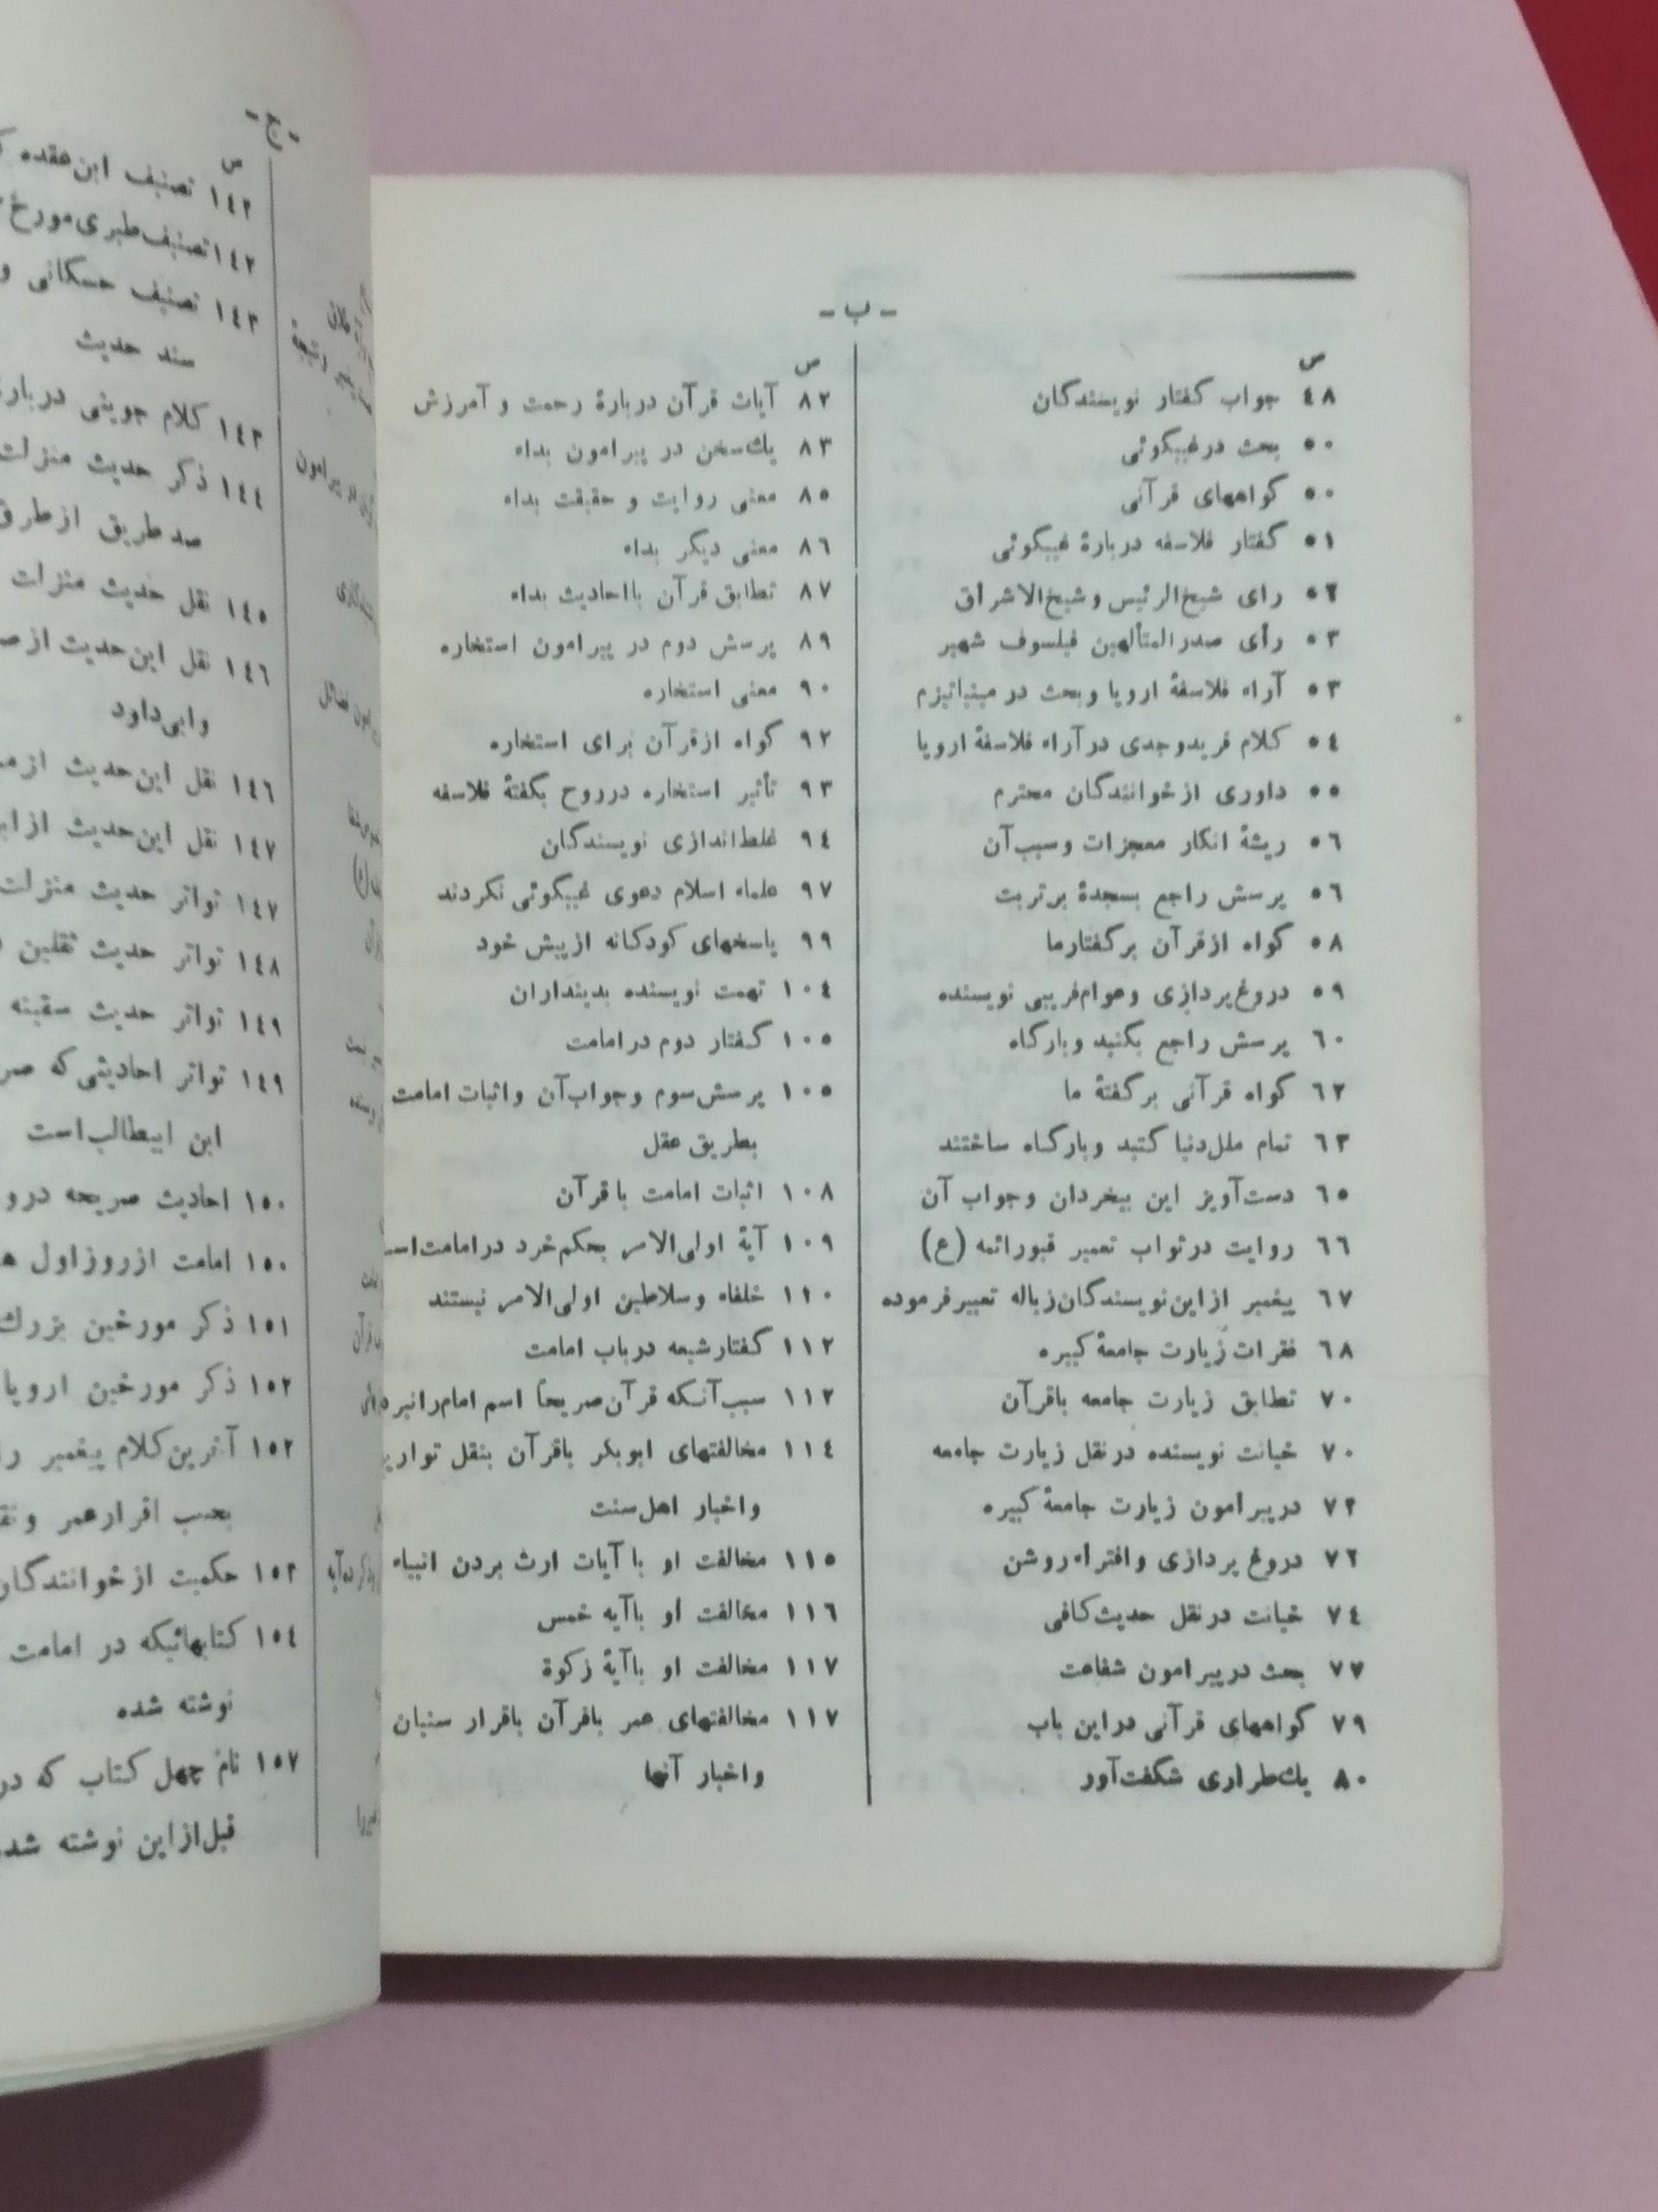 - ب -
ص
٤٨ جواب گفتار نویسندگان
٥٠ بحث درغیبگوئی
٥٠ گواههای قرآنی
٥١ گفتار فلاسفه دربارهٔ غیبگوئی
٥٢ رای شیخ‌الرئیس و شیخ‌الاشراق
٥٣ رأی صدرالمتألهین فیلسوف شهیر
٥٣ آراء فلاسفهٔ اروپا وبحث در مینیاتیزم
٥٤ کلام فریدوجدی درآراء فلاسفهٔ اروپا
٥٥ داوری ازخوانندگان محترم
٥٦ ریشهٔ انکار معجزات وسبب‌آن
٥٦ پرسش راجع بسجدهٔ برتربت
٥٨ گواه ازقرآن برگفتارما
٥٩ دروغ‌پردازی وعوام‌فریبی نویسنده
٦٠ پرسش راجع بگنبد وبارگاه
٦٢ گواه قرآنی برگفتهٔ ما
٦٣ تمام ملل‌دنیا گنبد وبارگاه ساختند
٦٥ دست‌آویز این بیخردان وجواب آن
٦٦ روایت درثواب تعمیر قبورائمه (ع)
٦٧ پیغمبر ازاین‌نویسندگان‌زباله تعبیرفرموده
٦٨ فقرات زیارت جامعهٔ کبیره
٧٠ تطابق زیارت جامعه باقرآن
٧٠ خیانت نویسنده درنقل زیارت جامعه
٧٢ درپیرامون زیارت جامعهٔ کبیره
٧٢ دروغ پردازی وافتراء روشن
٧٤ خیانت درنقل حدیث‌کافی
٧٧ بحث درپیرامون شفاعت
٧٩ گواههای قرآنی دراین باب
٨٠ یك‌طراری شگفت‌آور
ص
٨٢ آیات قرآن دربارهٔ رحمت و آمرزش
٨٣ یك‌سخن در پیرامون بداء
٨٥ معنی روایت و حقیقت بداء
٨٦ معنی دیگر بداء
٨٧ تطابق قرآن بااحادیث بداء
٨٩ پرسش دوم در پیرامون استخاره
٩٠ معنی استخاره
٩٢ گواه ازقرآن برای استخاره
٩٣ تأثیر استخاره درروح بگفتهٔ فلاسفه
٩٤ غلط‌اندازی نویسندگان
٩٧ علماء اسلام دعوی غیبگوئی نکردند
٩٩ پاسخهای کودکانه ازپیش خود
١٠٤ تهمت نویسنده بدینداران
١٠٥ گفتار دوم درامامت
١٠٥ پرسش‌سوم وجواب‌آن واثبات امامت
بطریق عقل
١٠٨ اثبات امامت باقرآن
١٠٩ آیهٔ اولی‌الامر بحکم‌خرد درامامت‌است
١١٠ خلفاء وسلاطین اولی‌الامر نیستند
١١٢ گفتارشیعه درباب امامت
١١٢ سبب‌آنکه قرآن‌صریحاً اسم امام‌رانبرده
١١٤ مخالفتهای ابوبکر باقرآن بنقل تواریخ
واخبار اهل‌سنت
١١٥ مخالفت او با آیات ارث بردن انبیاء
١١٦ مخالفت او باآیه خمس
١١٧ مخالفت او باآیهٔ زکوة
١١٧ مخالفتهای عمر باقرآن باقرار سنیان
واخبار آنها
- ج -
ص
١٤٢ تصنیف ابن‌عقده
١٤٢ تصنیف‌طبری‌مورخ
١٤٣ تصنیف حسکانی و
سند حدیث
١٤٣ کلام جوینی درباره
١٤٤ ذکر حدیث منزلت
صدطریق ازطرق
١٤٥ نقل حدیث منزلت
١٤٦ نقل این‌حدیث از
وابی‌داود
١٤٦ نقل این‌حدیث از
١٤٧ نقل این‌حدیث از
١٤٧ تواتر حدیث منزلت
١٤٨ تواتر حدیث ثقلین
١٤٩ تواتر حدیث سفینه
١٤٩ تواتر احادیثی‌که
ابن ابیطالب‌است
١٥٠ احادیث صریحه
١٥٠ امامت ازروزاول
١٥١ ذکر مورخین بزرك
١٥٢ ذکر مورخین اروپا
١٥٢ آخرین‌کلام پیغمبر
بحسب اقرارعمر
١٥٣ حکمیت ازخوانندگان
١٥٤ کتابهائیکه در امامت
نوشته شده
١٥٧ نام چهل کتاب که
قبل‌ازاین نوشته